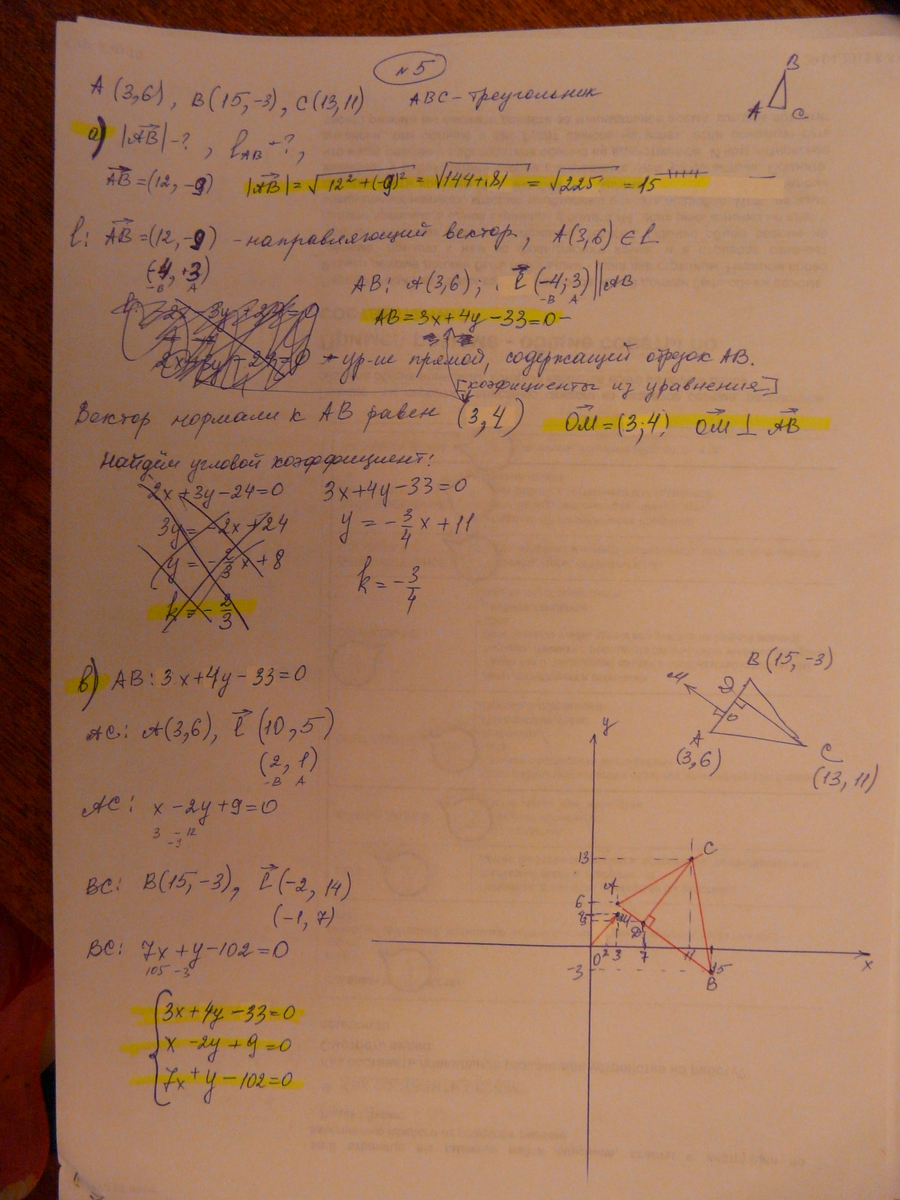 №5
A(3,6), B(15,-3), C(13,11) ABC-треугольник
B
A C
а) |AB|-?, l AB -?,
AB=(12,-9) |AB|=√12²+(-9)² = √144+81 = √225 = 15
l: AB=(12,-9) -направляющий вектор, A(3,6)∈l
(-4,+3)
-B A
AB: A(3,6); l(-4;3)||AB
-B A
AB=3x+4y-33=0-
-ур-ие прямой, содержащий отрезок AB.
[коэфициенты из уравнения]
Вектор нормали к AB равен (3,4) OM=(3;4), OM⊥AB
Найдём угловой коэффициент:
2x+3y-24=0 3x+4y-33=0
3y=-2x+24 y=-3/4x+11
y=-2/3x+8
k=-2/3 k=-3/4
в) AB:3x+4y-33=0
AC: A(3,6), l(10,5)
(2,1)
-B A
AC: x-2y+9=0
3 -12
-3
BC: B(15,-3), l(-2,14)
(-1,7)
BC: 7x+y-102=0
105 -3
3x+4y-33=0
x-2y+9=0
7x+y-102=0
B(15,-3)
M
D
O
A
(3,6)
C
(13,11)
y
13
C
A
6
M
D
0 2 3 7 11 15
x
-3
B